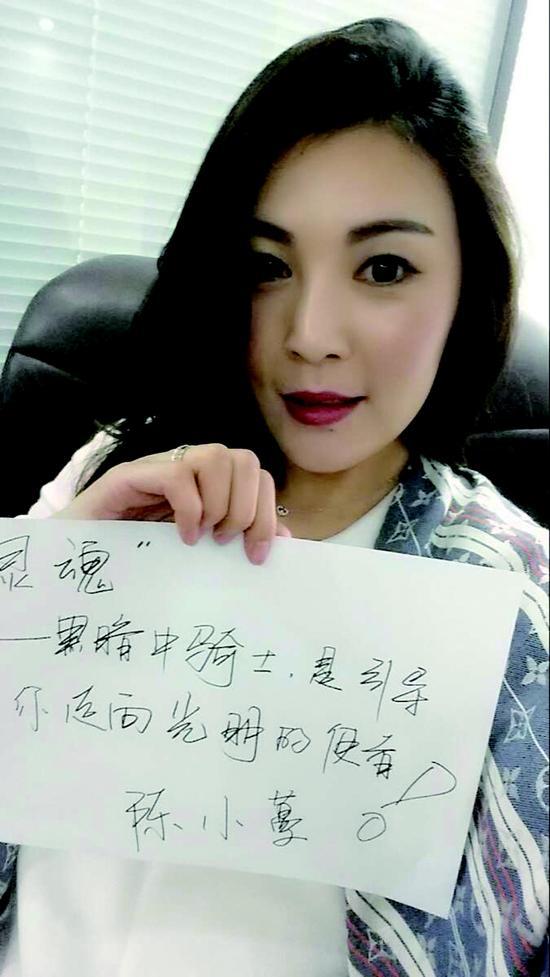 灵魂”
—黑暗中骑士，是引导
你迈向光明的使者！
陈小蔓